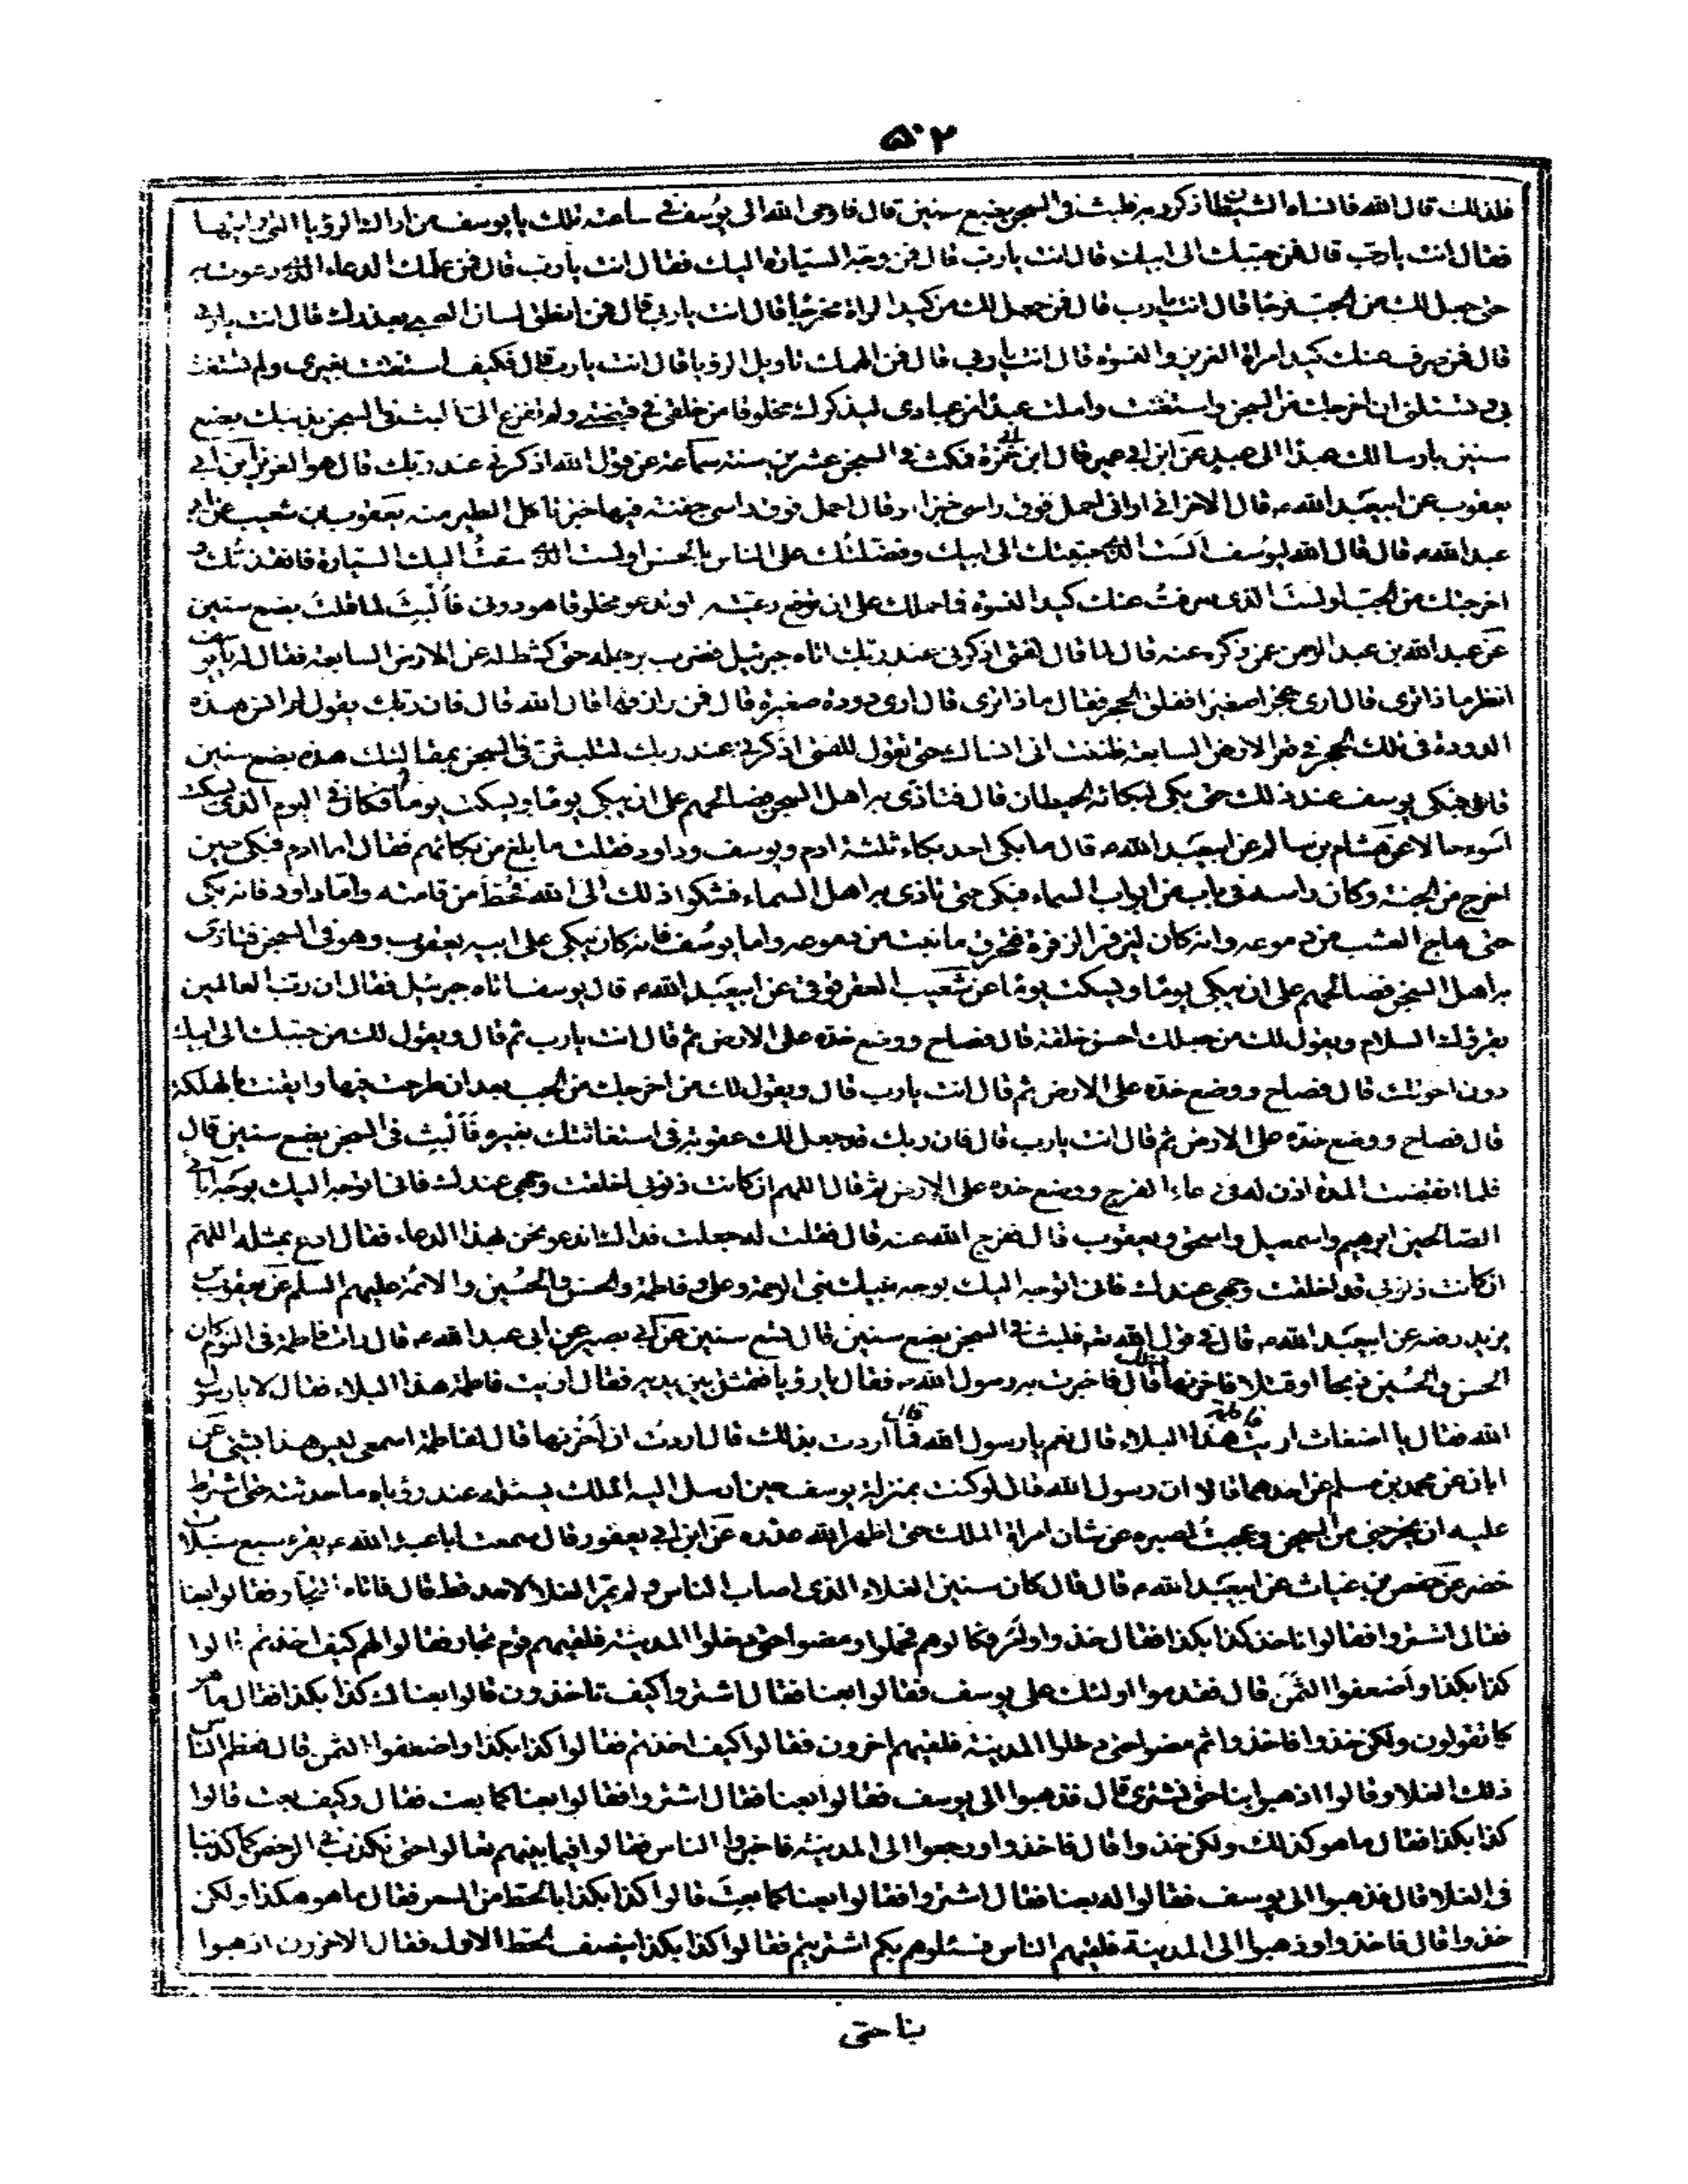 ٥٠٢
فلذلك قال الله فانساه الشيطان ذكر ربه فلبث في السجن بضع سنين قال فاوحى الله الى يوسف في ساعته تلك يا يوسف من اراك الرؤيا التي رايتها
فقال انت يا رب قال فمن حببك الى ابيك قال انت يا رب قال فمن وجه السيارة اليك فقال انت يا رب قال فمن علمك الدعاء الذى دعوت به
حتى جعل لك من الجب فرجا قال انت يا رب قال فمن جعل لك من كيد المراة مخرجا قال انت يا رب قال فمن انطق لسان الصبي بعذرك قال انت يا رب
قال فمن صرف عنك كيد امراة العزيز والنسوة قال انت يا رب قال فمن الهمك تاويل الرؤيا قال انت يا رب قال فكيف استغثت بغيرى ولم تستغث
بى وتسئلنى ان اخرجك من السجن واستغثت واملت عبدا من عبادى ليذكرك مخلوقا من خلقى فى قبضتى ولم تفزع الى البث فى السجن بذنبك بضع
سنين بارسالك عبدا الى عبد عن ابن ابى عمير قال ابن حمزة فمكث فى السجن عشرين سنة سماعة عن قول الله اذكرنى عند ربك قال هو العزيز ابن ابى
يعقوب عن ابيعبد الله ع قال الاخر انى ارانى احمل فوق راسى خبزا قال احمل فوق راسى جفنة فيها خبز تاكل الطير منه يعقوب بن شعيب عن ابى
عبد الله ع قال قال الله ليوسف الست الذى حببتك الى ابيك وفضلتك على الناس بالحسن اولست الذى سقت اليك السيارة فانقذتك و
اخرجتك من الجب اولست الذى صرفت عنك كيد النسوة فما حملك على ان ترفع رغبتك او تدعو مخلوقا هو دونى فالبث لما قلت بضع سنين
عن عبد الله بن عبد الرحمن عمن ذكره عنه قال لما قال للفتى اذكرنى عند ربك اتاه جبرئيل فضرب برجله حتى كشط له عن الارض السابعة فقال له يا يوسف
انظر ما ذا ترى قال ارى حجرا صغيرا ففلق الحجر فقال ما ذا ترى قال ارى دودة صغيرة قال فمن رازقها قال الله قال فان ربك يقول لم انس هذه
الدودة فى ذلك الحجر فى قعر الارض السابعة ظننت انى انساك حتى تقول للفتى اذكرنى عند ربك لتلبثن فى السجن بمقالتك هذه بضع سنين
قال فبكى يوسف عند ذلك حتى بكى لبكائه الحيطان قال فتاذى به اهل السجن فصالحهم على ان يبكى يوما ويسكت يوما فكان فى اليوم الذى يسكت
اسوء حالا عن هشام بن سالم عن ابيعبد الله ع قال ما بكى احد بكاء ثلثة ادم ويوسف وداود فقلت ما بلغ من بكائهم فقال اما ادم فبكى حين
اخرج من الجنة وكان راسه فى باب من ابواب السماء فبكى حتى تاذى به اهل السماء فشكوا ذلك الى الله فحط من قامته واما داود فانه بكى
حتى هاج العشب من دموعه وانه كان ليزفر الزفرة فيحرق ما نبت من دموعه واما يوسف فانه كان يبكى على ابيه يعقوب وهو فى السجن فتاذى
به اهل السجن فصالحهم على ان يبكى يوما ويسكت يوما عن شعيب العقرقوفى عن ابيعبد الله ع قال يوسف اتاه جبرئيل فقال ان رب العالمين
يقرئك السلام ويقول لك من جعلك احسن خلقه قال فصاح ووضع خده على الارض ثم قال انت يا رب ثم قال ويقول لك من حببك الى ابيك
دون اخوتك قال فصاح ووضع خده على الارض ثم قال انت يا رب قال ويقول لك من اخرجك من الجب بعد ان طرحت فيها وايقنت بالهلكة
قال فصاح ووضع خده على الارض ثم قال انت يا رب قال فان ربك قد جعل لك عقوبة فى استغاثتك بغيره فالبث فى السجن بضع سنين قال
فلما انقضت المدة اذن له فى دعاء الفرج ووضع خده على الارض ثم قال اللهم ان كانت ذنوبى اخلقت وجهى عندك فانى اتوجه اليك بوجه آبائى
الصالحين ابرهيم واسمعيل واسحق ويعقوب قال ففرج الله عنه قال فقلت له جعلت فداك اندعو نحن بهذا الدعاء فقال ادع بمثله اللهم
ان كانت ذنوبى قد اخلقت وجهى عندك فانى اتوجه اليك بوجه نبيك نبى الرحمة وعلى وفاطمة والحسن والحسين والائمة عليهم السلم عن يعقوب بن
يزيد رفعه عن ابيعبد الله ع قال فى قول الله تع فلبث فى السجن بضع سنين قال سبع سنين عن ابى بصير عن ابى عبد الله ع قال رات فاطمة فى النوم كان
الحسن والحسين ذبحا او قتلا فاحزنها ذلك قال فاخبرت به رسول الله ص فقال يا رؤيا فتمثلت بين يديه فقال اريت فاطمة هذا البلاء فقال لا يا رسول
الله فقال يا اضغاث اريت فاطمة هذا البلاء قال نعم يا رسول الله قال فما اردت بذلك قال اردت ان احزنها قال لفاطمة اسمعى ليس هذا بشئ عن
ابان عن محمد بن مسلم عن احدهما قالا ان رسول الله قال لو كنت بمنزلة يوسف حين ارسل اليه الملك يسئله عند رؤياه ما حدثته حتى اشترط
عليه ان يخرجنى من السجن وعجبت لصبره عن شان امراة الملك حتى اظهر الله عذره عن ابن ابى يعفور قال سمعت ابا عبد الله ع يقرء سبع سنبلات
خضر عن حفص بن غياث عن ابيعبد الله ع قال قال كان سنين الغلاء الذى اصاب الناس ولم يتمر الغلا لاحد قط قال فاتاه التجار فقالوا بعنا
فقال اشتروا فقالوا ناخذ كذا بكذا فقال خذوا وامر فكالوهم فحملوا ومضوا حتى دخلوا المدينة فلقيهم قوم تجار فقالوا لهم كيف اخذتم قالوا
كذا بكذا واضعفوا الثمن قال فقدموا اولئك على يوسف فقالوا بعنا فقال اشتروا كيف تاخذون قالوا بعنا كذا بكذا فقال ما هو
كما تقولون ولكن خذوا فاخذوا ثم مضوا حتى دخلوا المدينة فلقيهم اخرون فقالوا كيف اخذتم فقالوا كذا بكذا واضعفوا الثمن قال فعظم الناس
ذلك الغلا وقالوا اذهبوا بنا حتى نشترى قال فذهبوا الى يوسف فقالوا بعنا فقال اشتروا فقالوا بعنا كما بعت فقال وكيف بعت قالوا
كذا بكذا فقال ما هو كذلك ولكن خذوا قال فاخذوا ورجعوا الى المدينة فاخبروا الناس فقالوا فيما بينهم تعالوا حتى نكذب فى الرخص كما كذبنا
فى الغلا قال فذهبوا الى يوسف فقالوا له بعنا فقال اشتروا فقالوا بعنا كما بعت قالوا كذا بكذا بالحط من السعر فقال ما هو هكذا ولكن
خذوا قال فاخذوا وذهبوا الى المدينة فلقيهم الناس فسئلوهم بكم اشتريتم فقالوا كذا بكذا بنصف الحط الاول فقال الاخرون اذهبوا
بنا حتى